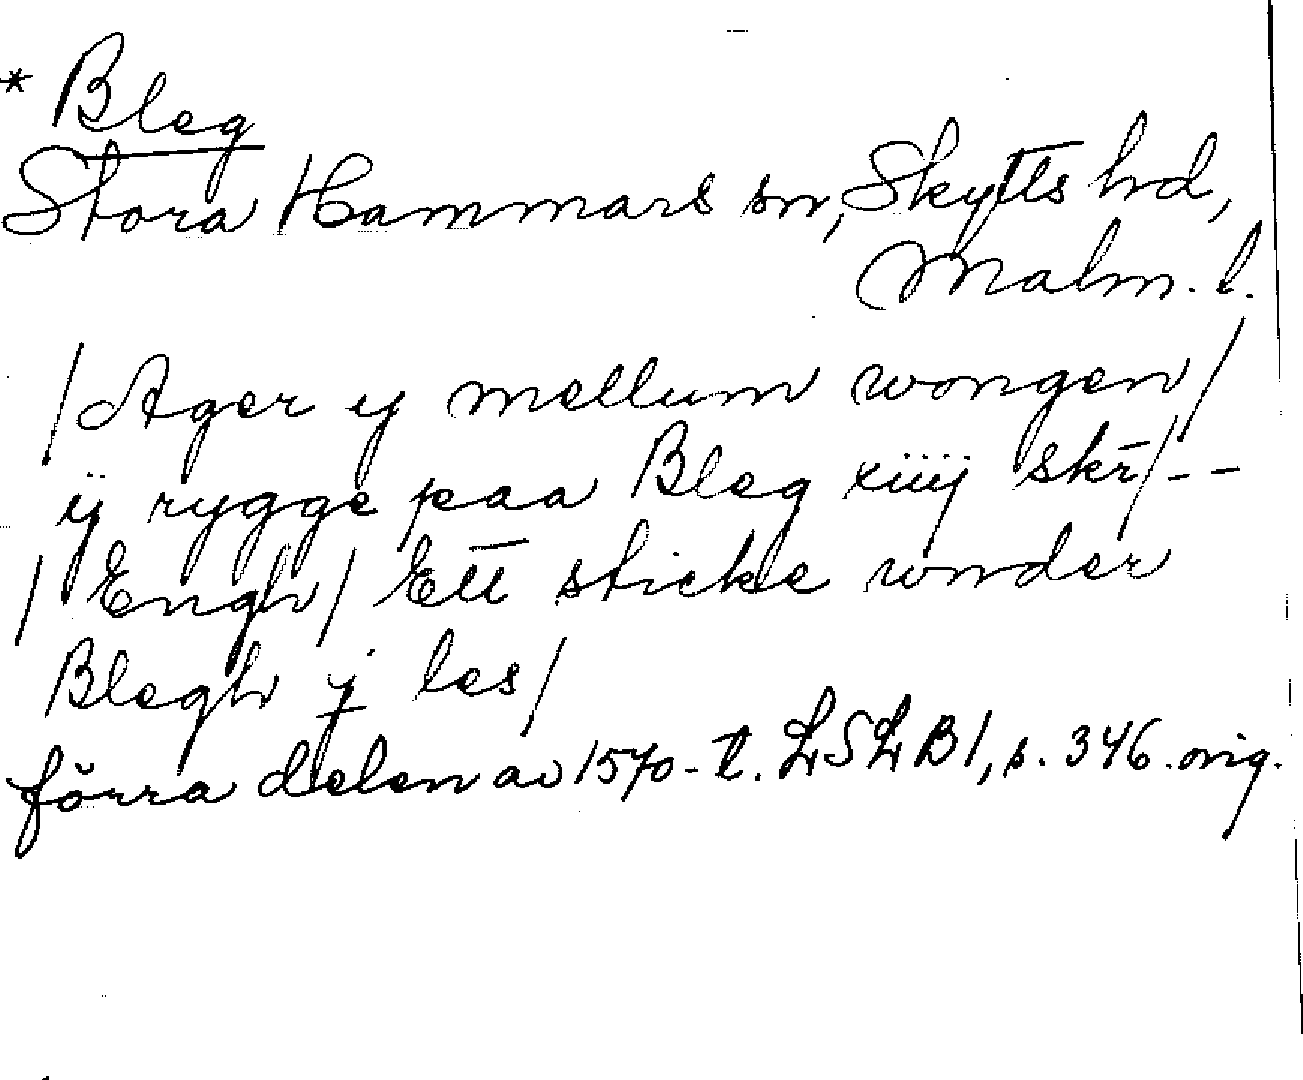 * Bleg
Stora Hammars sn, Skytts hrd,
Malm. l.
/Ager y mellum wongen/
ÿ rygge paa Bleg xiiij skr̄/--
/Engh/ Ett sticke wnder
Blegh j les/
förra delen av 1570-t. LSLB1, s. 346 orig.